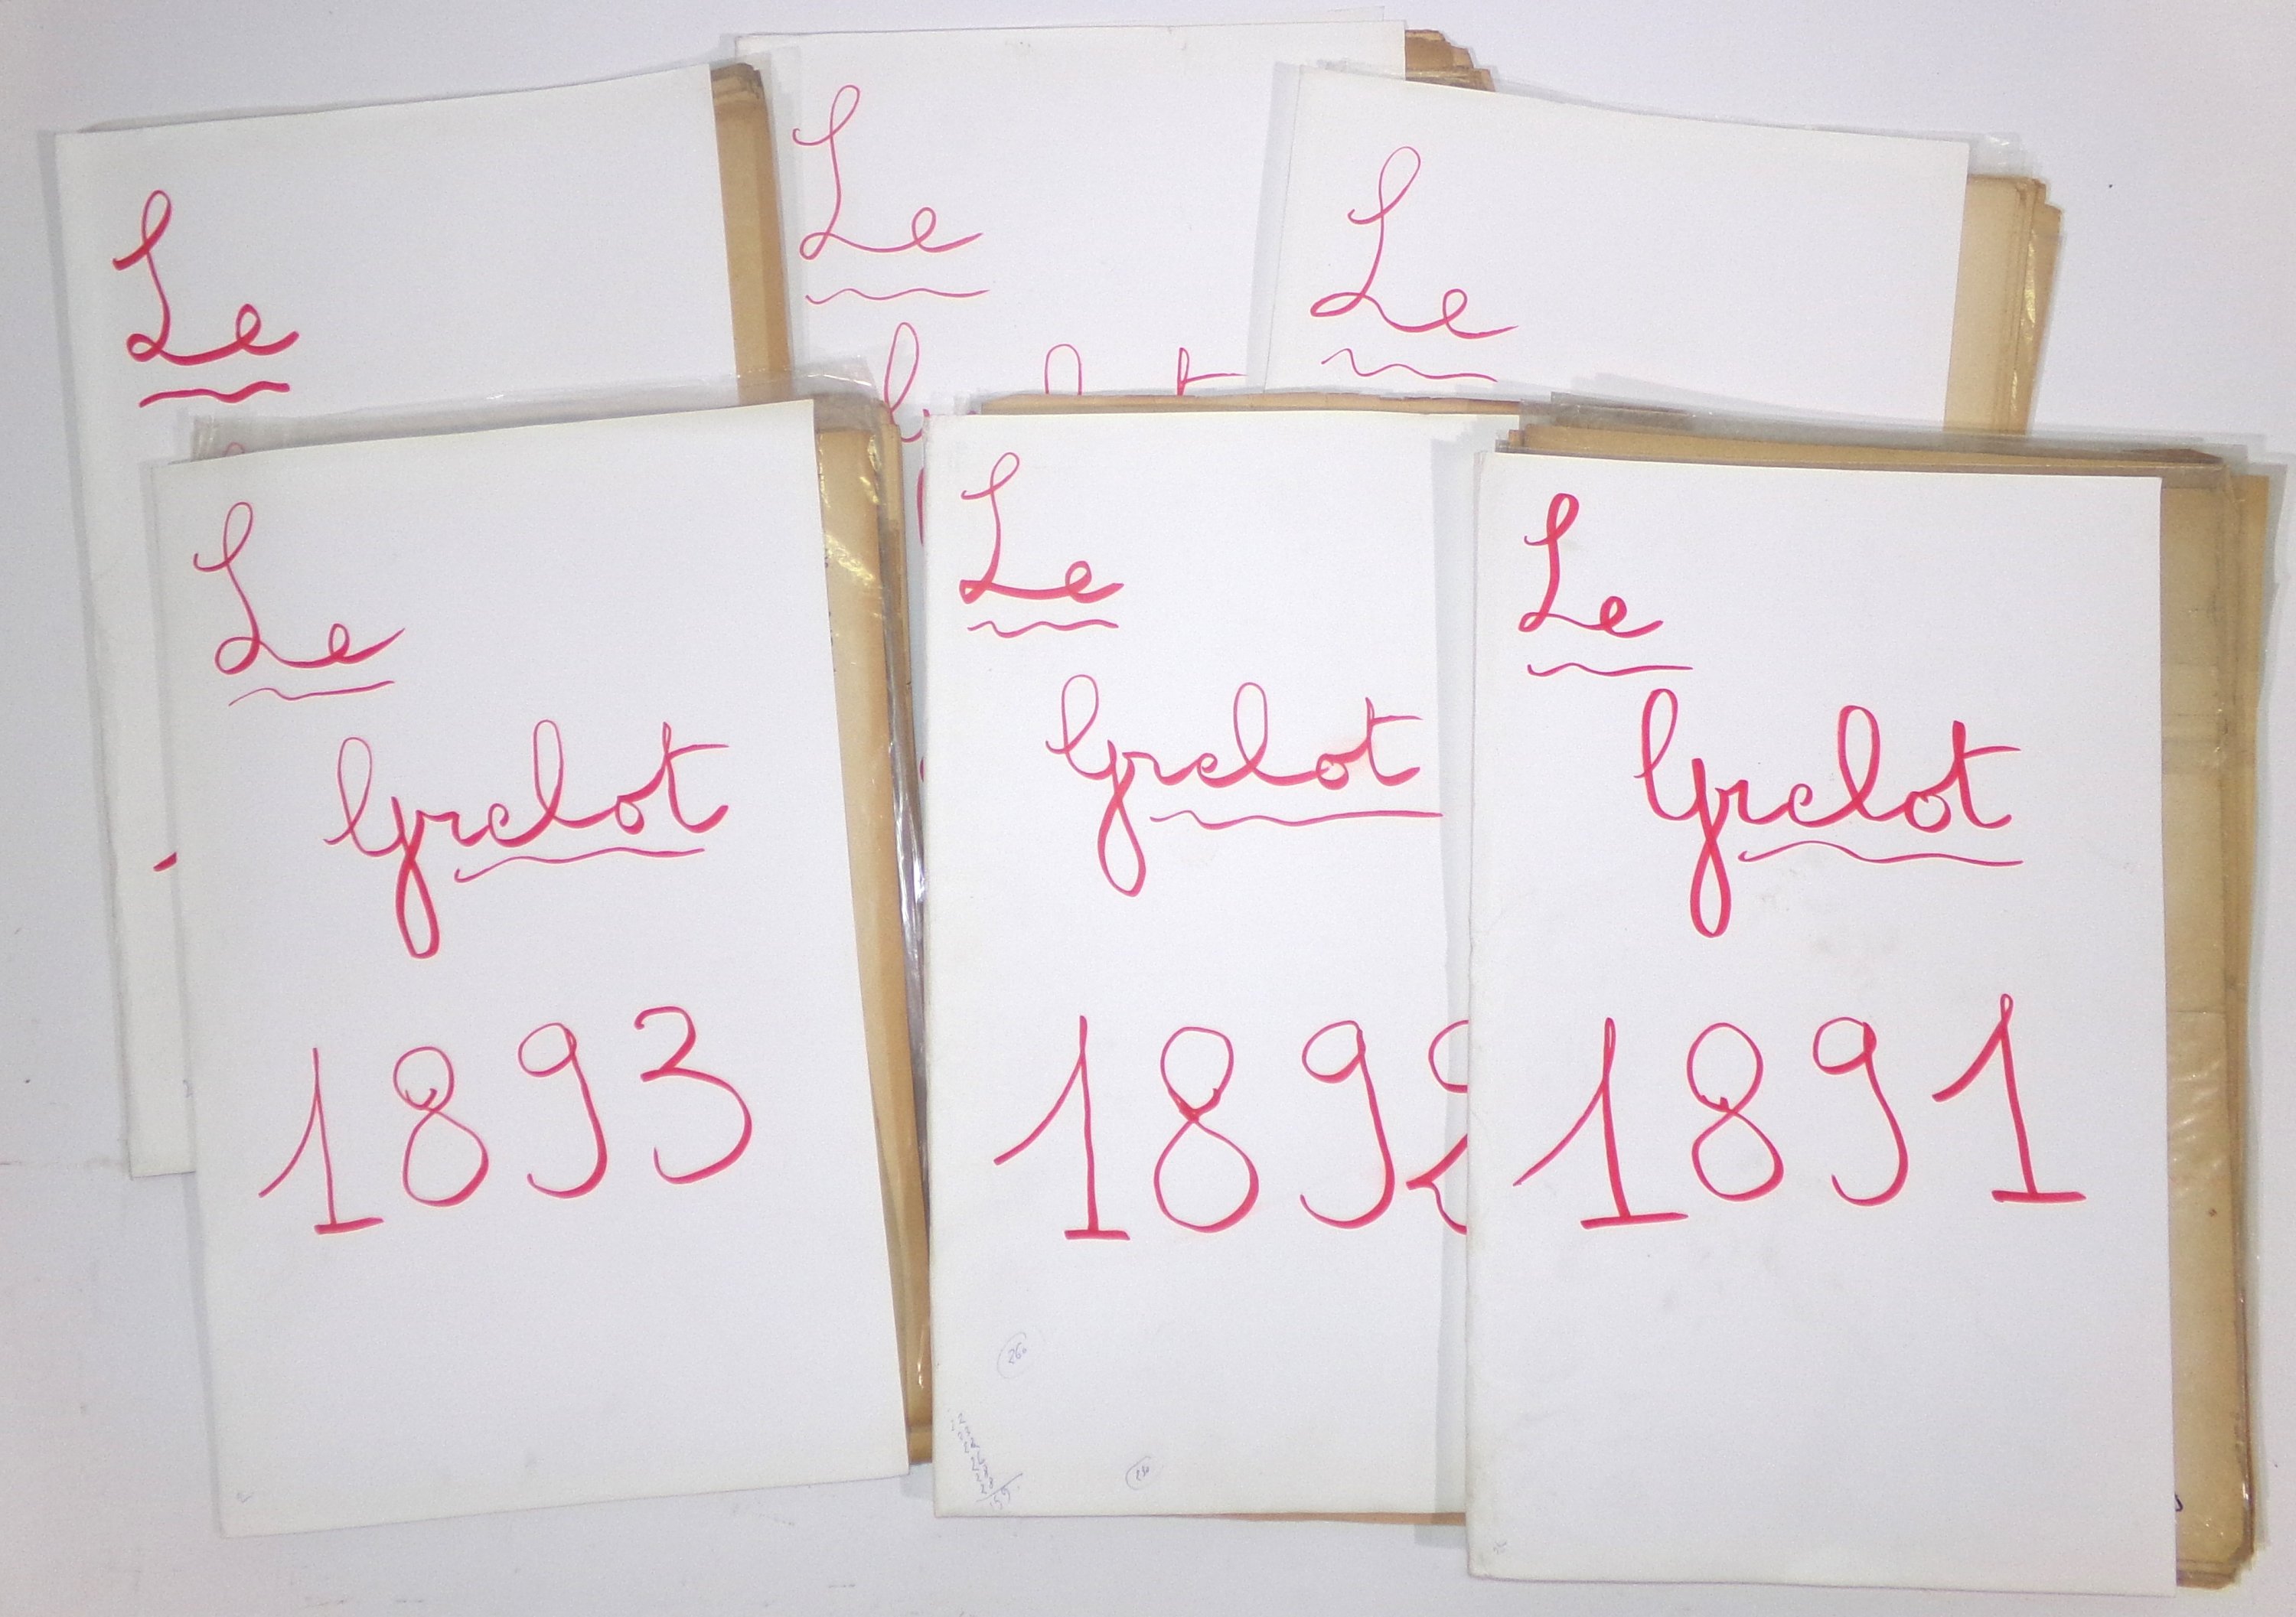 Le
Le
Le
Le
Grelot
1893
Le
Grelot
1892
Le
Grelot
1891